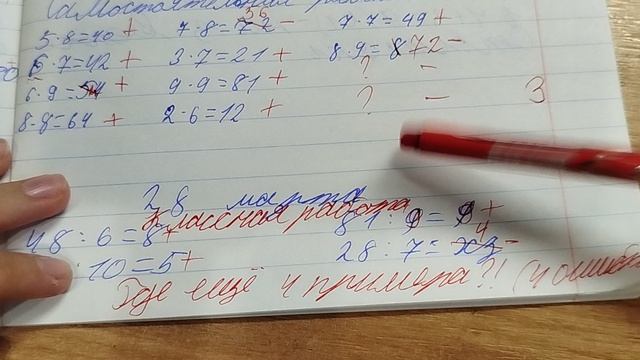 Самостоятельная работа
5·8=40 + 7·8=72 56 − 7·7=49 +
6·7=42 + 3·7=21 + 8·9=72 −
6·9=54 + 9·9=81 + ? −
8·8=64 + 2·6=12 + ? − 3
28 марта
Классная работа
48:6=8 + 81:9=9 +
:10=5 + 28:7=хз 4 −
Где ещё 4 примера?! (4 ошиб